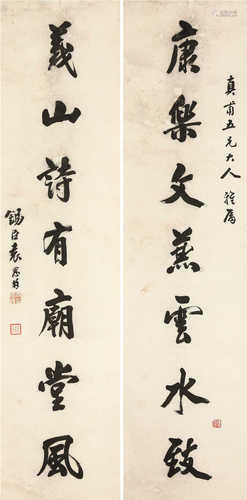 真甫五兄大人雅属
康樂文兼雲水致
義山詩有廟堂風
錫臣袁思韠